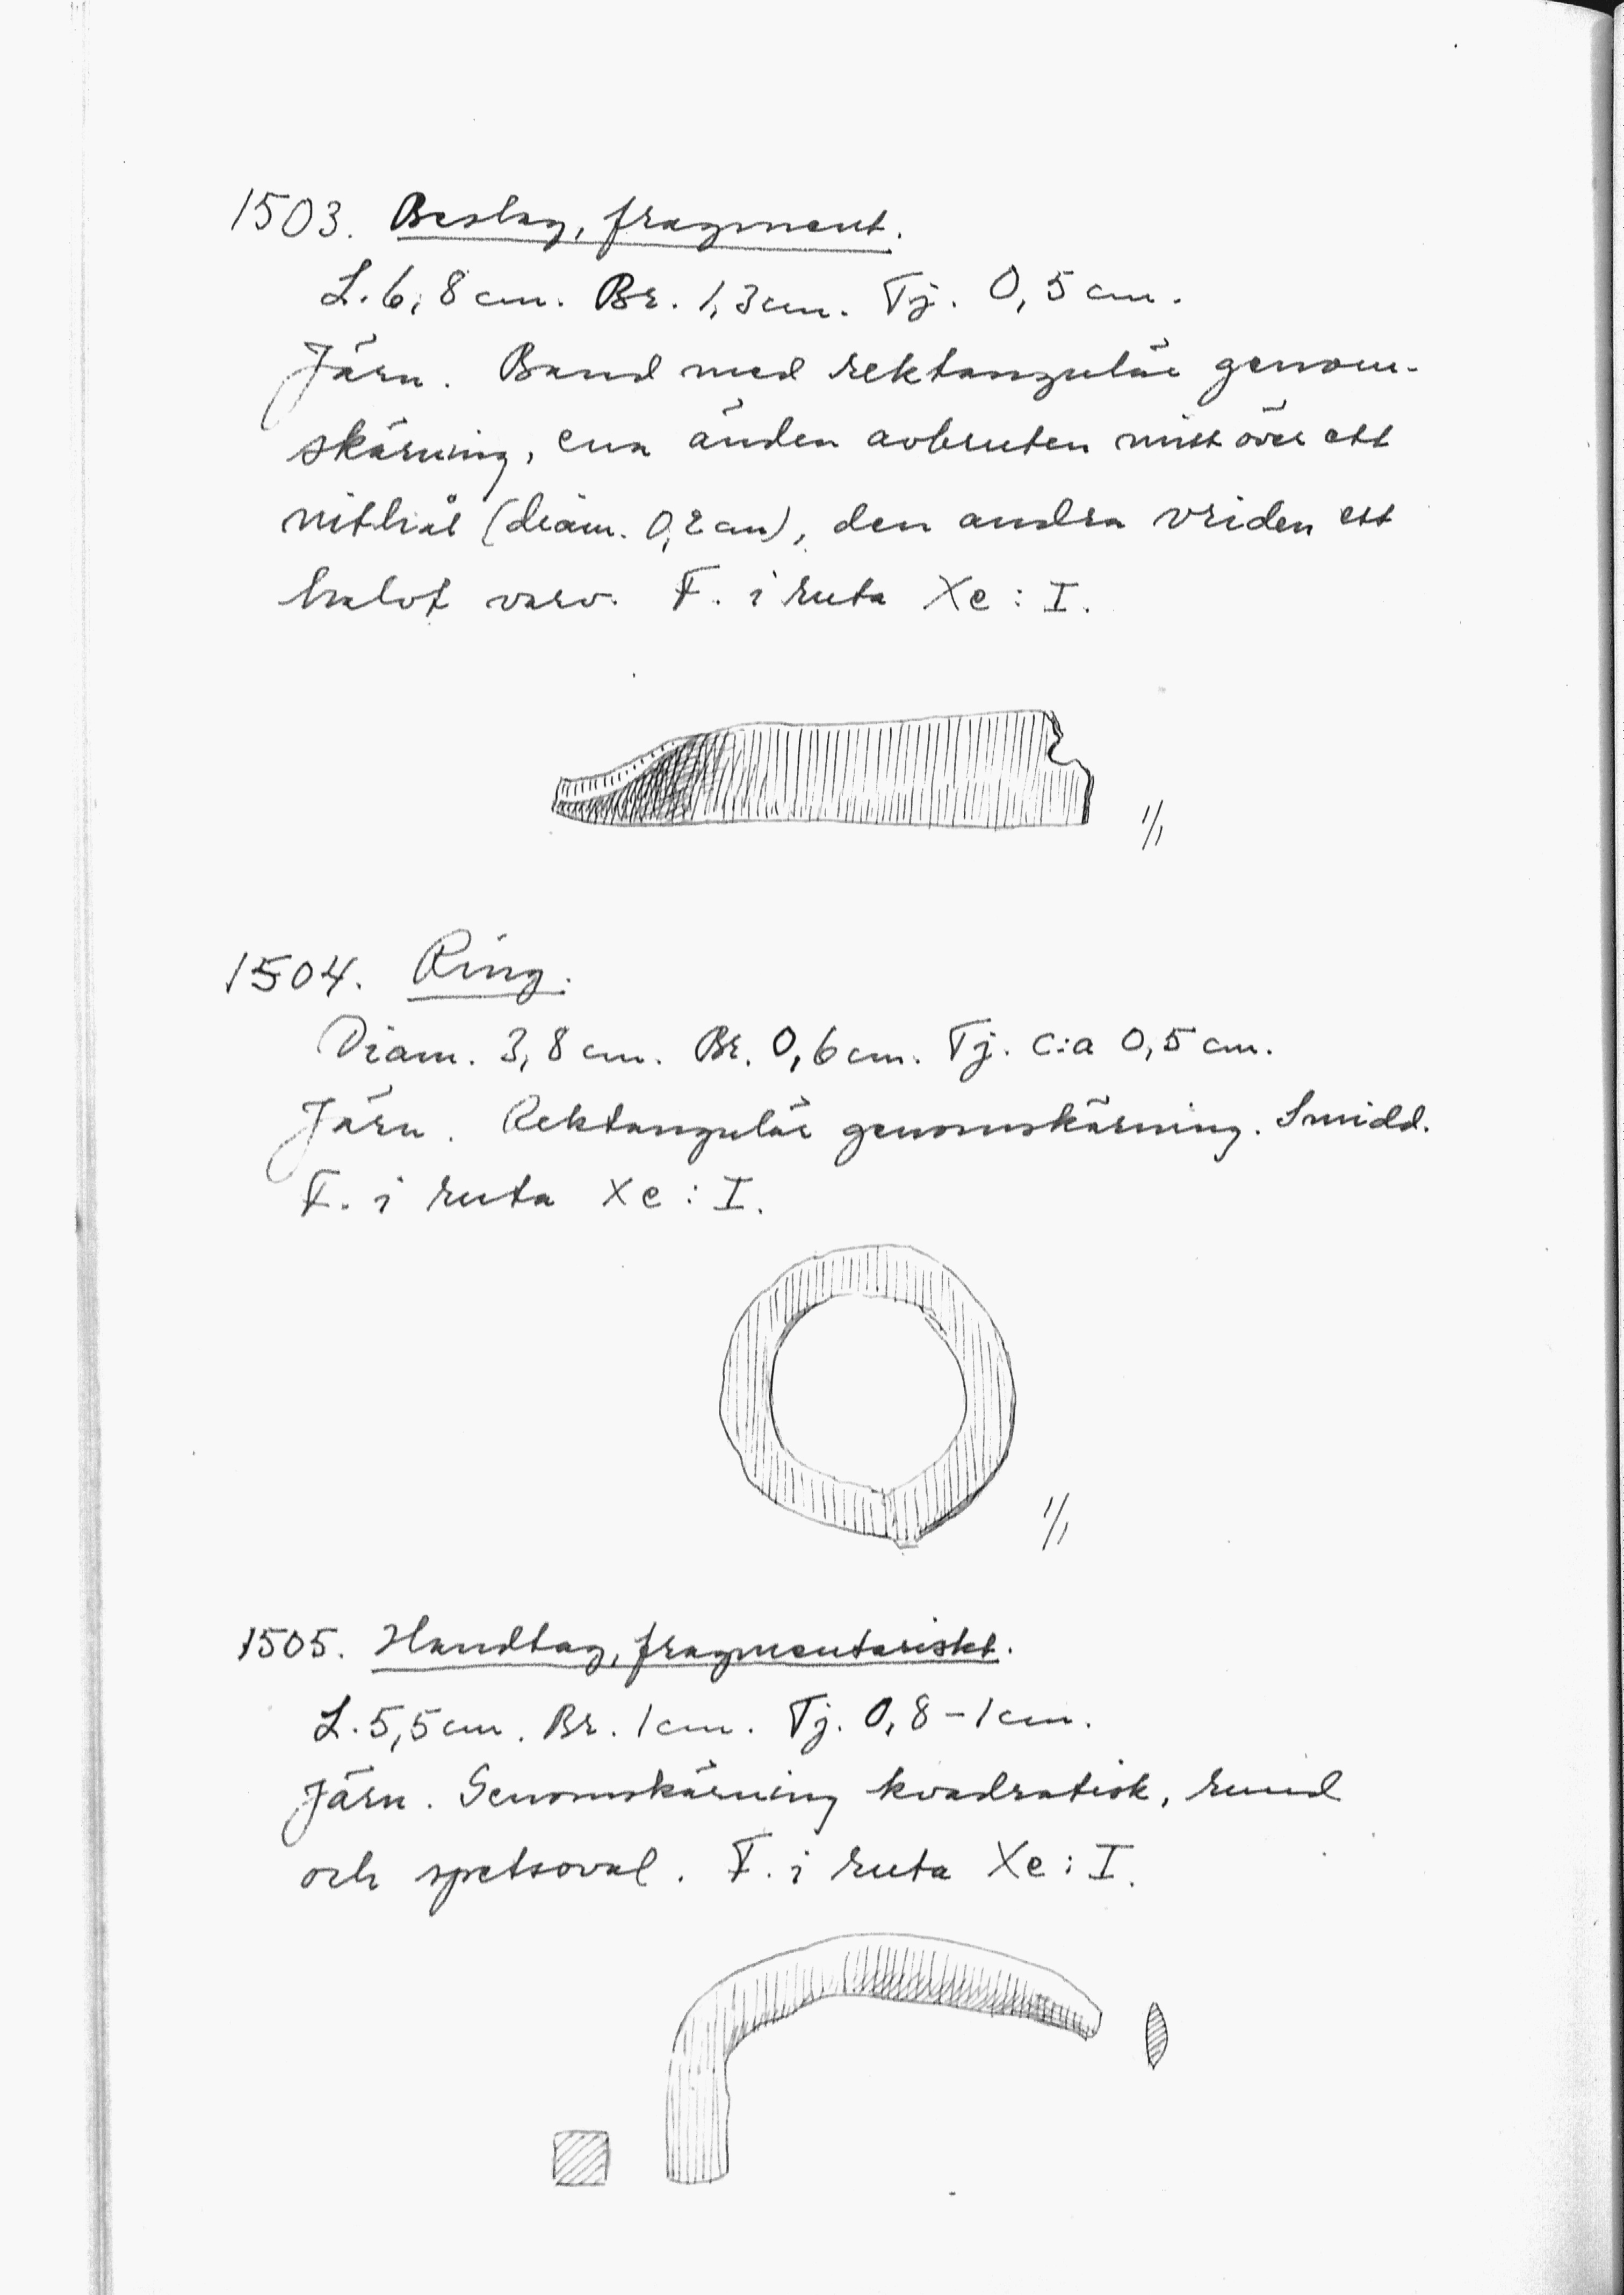 1503. Beslag, fragment.
L. 6,8 cm. Br. 1,3 cm. Tj. 0,5 cm.
Järn. Band med rektangulär genom-
skärning, ena änden avbruten mitt över ett
nithål (diam. 0,2 cm), den andra vriden ett
halvt varv. F. i ruta Xe : I.
1/1
1504. Ring.
Diam. 3,8 cm. Br. 0,6 cm. Tj. c:a 0,5 cm.
Järn. Rektangulär genomskärning. Smidd.
F. i ruta Xe : I.
1/1
1505. Handtag, fragmentariskt.
L. 5,5 cm. Br. 1 cm. Tj. 0,8 - 1 cm.
Järn. Genomskärning kvadratisk, rund
och spetsoval. F. i ruta Xe : I.